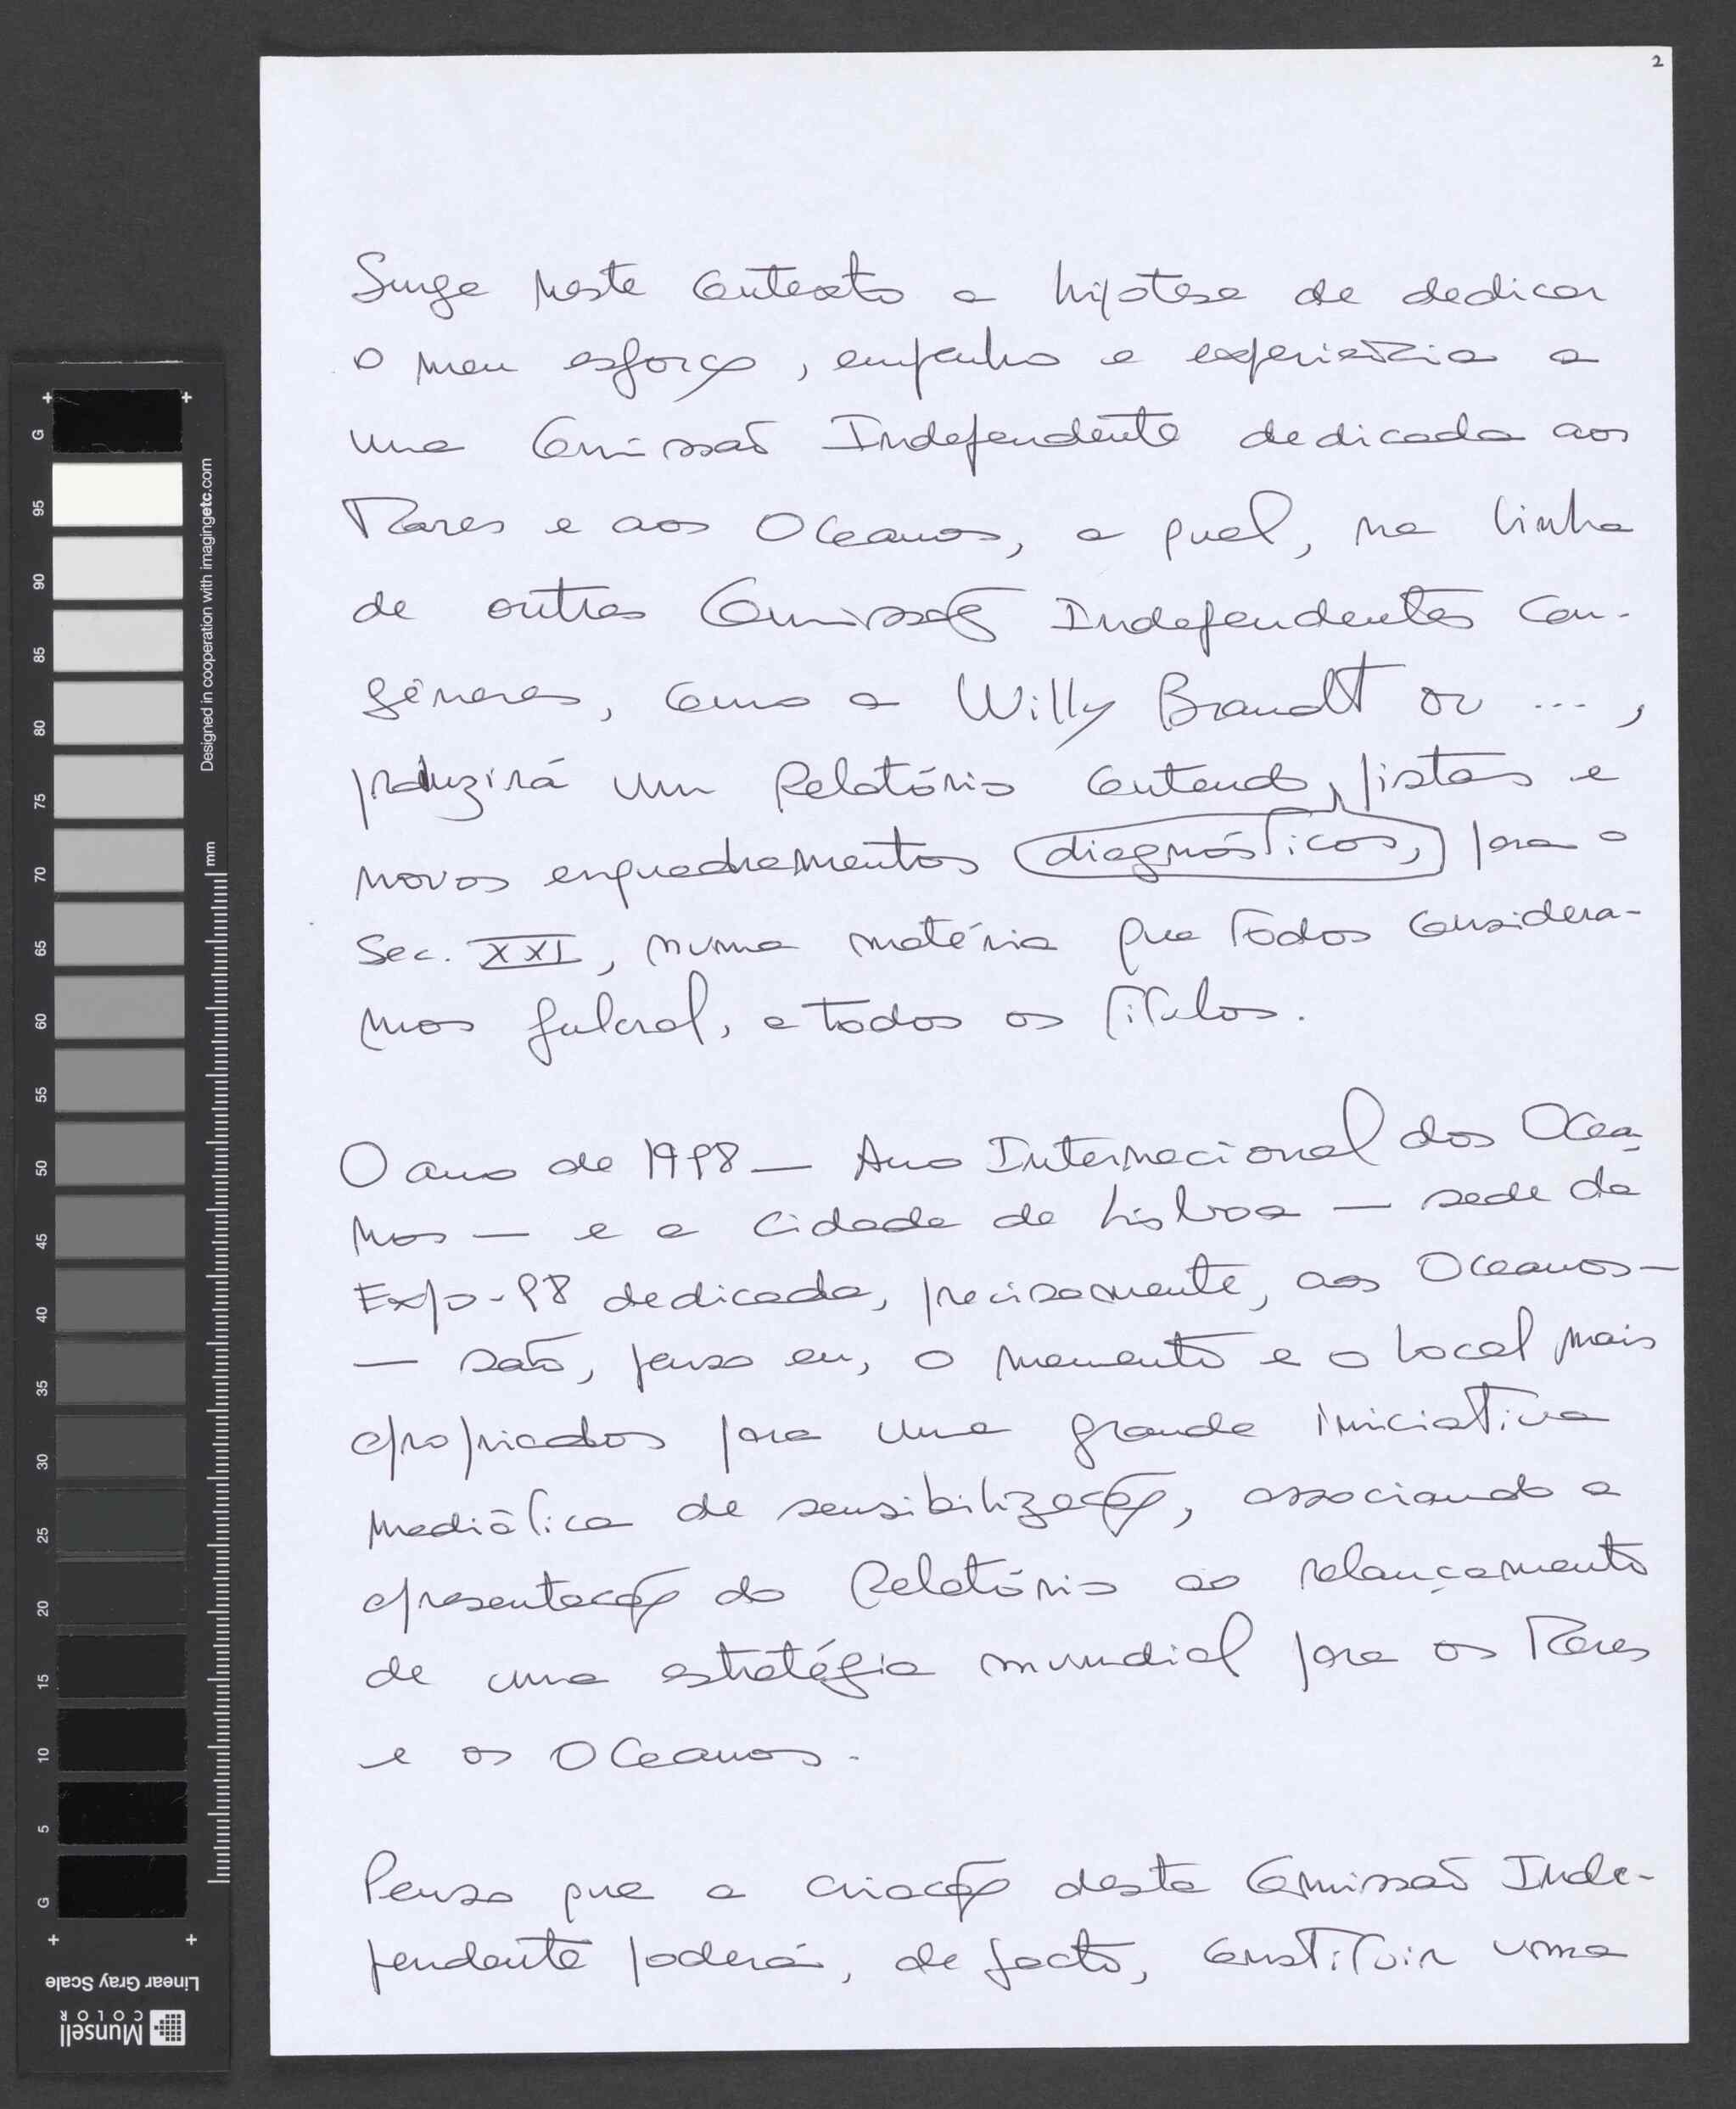 2
Surge neste contexto a hipótese de dedicar
o meu esforço, empenho e experiência a
uma Comissão Independente dedicada aos
Mares e aos Oceanos, a qual, na linha
de outras Comissões Independentes con-
géneres, como a Willy Brandt ou ...,
produzirá um Relatório contendo pistas e
novos enquadramentos diagnósticos, para o
Sec. XXI, numa matéria que todos considera-
mos fulcral, a todos os títulos.
O ano de 1998 — Ano Internacional dos Ocea-
nos — e a cidade de Lisboa — sede da
Expo-98 dedicada, precisamente, aos Oceanos —
— são, penso eu, o momento e o local mais
apropriados para uma grande iniciativa
mediática de sensibilização, associando a
apresentação do Relatório ao relançamento
de uma estratégia mundial para os Mares
e os Oceanos.
Penso que a criação desta Comissão Inde-
pendente poderá, de facto, constituir uma
G 95 90 85 80 75 70 65 60 55 50 45 40 35 30 25 20 15 10 5 G
Designed in cooperation with imagingetc.com
mm
Linear Gray Scale
Munsell
COLOR